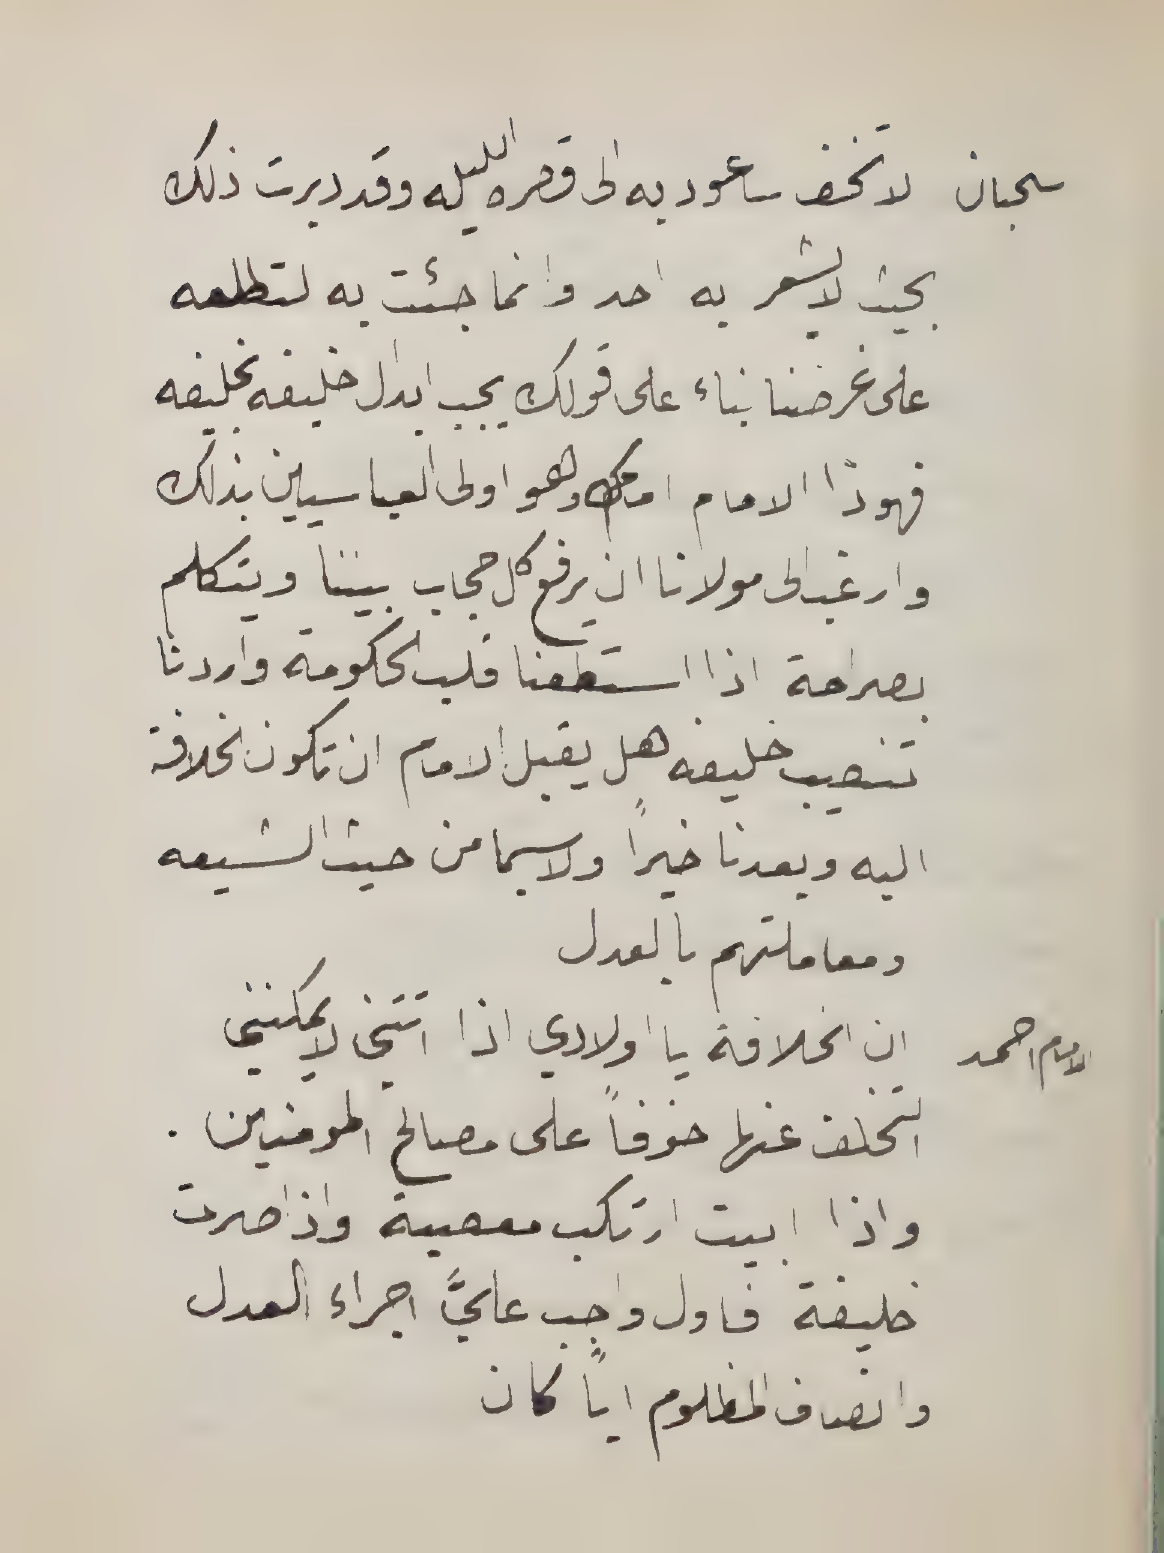 سحبان لا تخف ساعود به الى قصره الليله وقد دبرت ذلك
بحيث لا يشعر به احد وانما جئت به لتطلعه
على غرضنا بناء على قولك يجب ابدال خليفه بخليفه
فهوذا الامام امامك وهو اولى العباسيين بذلك
وارغب الى مولانا ان يرفع كل حجاب بيننا ويتكلم
بصراحة اذا استطعنا قلب الحكومة واردنا
تنصيب خليفه هل يقبل الامام ان تكون الخلافة
اليه ويعدنا خيراً ولا سيما من حيث الشيعه
ومعاملتهم بالعدل
الامام احمد ان الخلافة يا اولادي اذا اتتني لا يمكنني
التخلف عنها خوفاً على مصالح المومنين .
واذا ابيت ارتكب معصية واذا صرت
خليفة فاول واجب عليَّ اجراء العدل
وانصاف المظلوم اياً كان